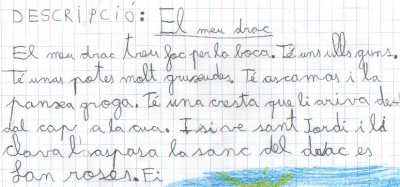 DESCRIPCIÓ: El meu drac
El meu drac treu foc per la boca. Té uns ulls guns.
Té unas potes molt gruxudes. Té ascamas i la
panxea groga. Té una cresta que li ariva des
dal cap a la cua. I si ve sant Jordi i li
clava l'aspasa la sanc del drac es
fan roses. Fi